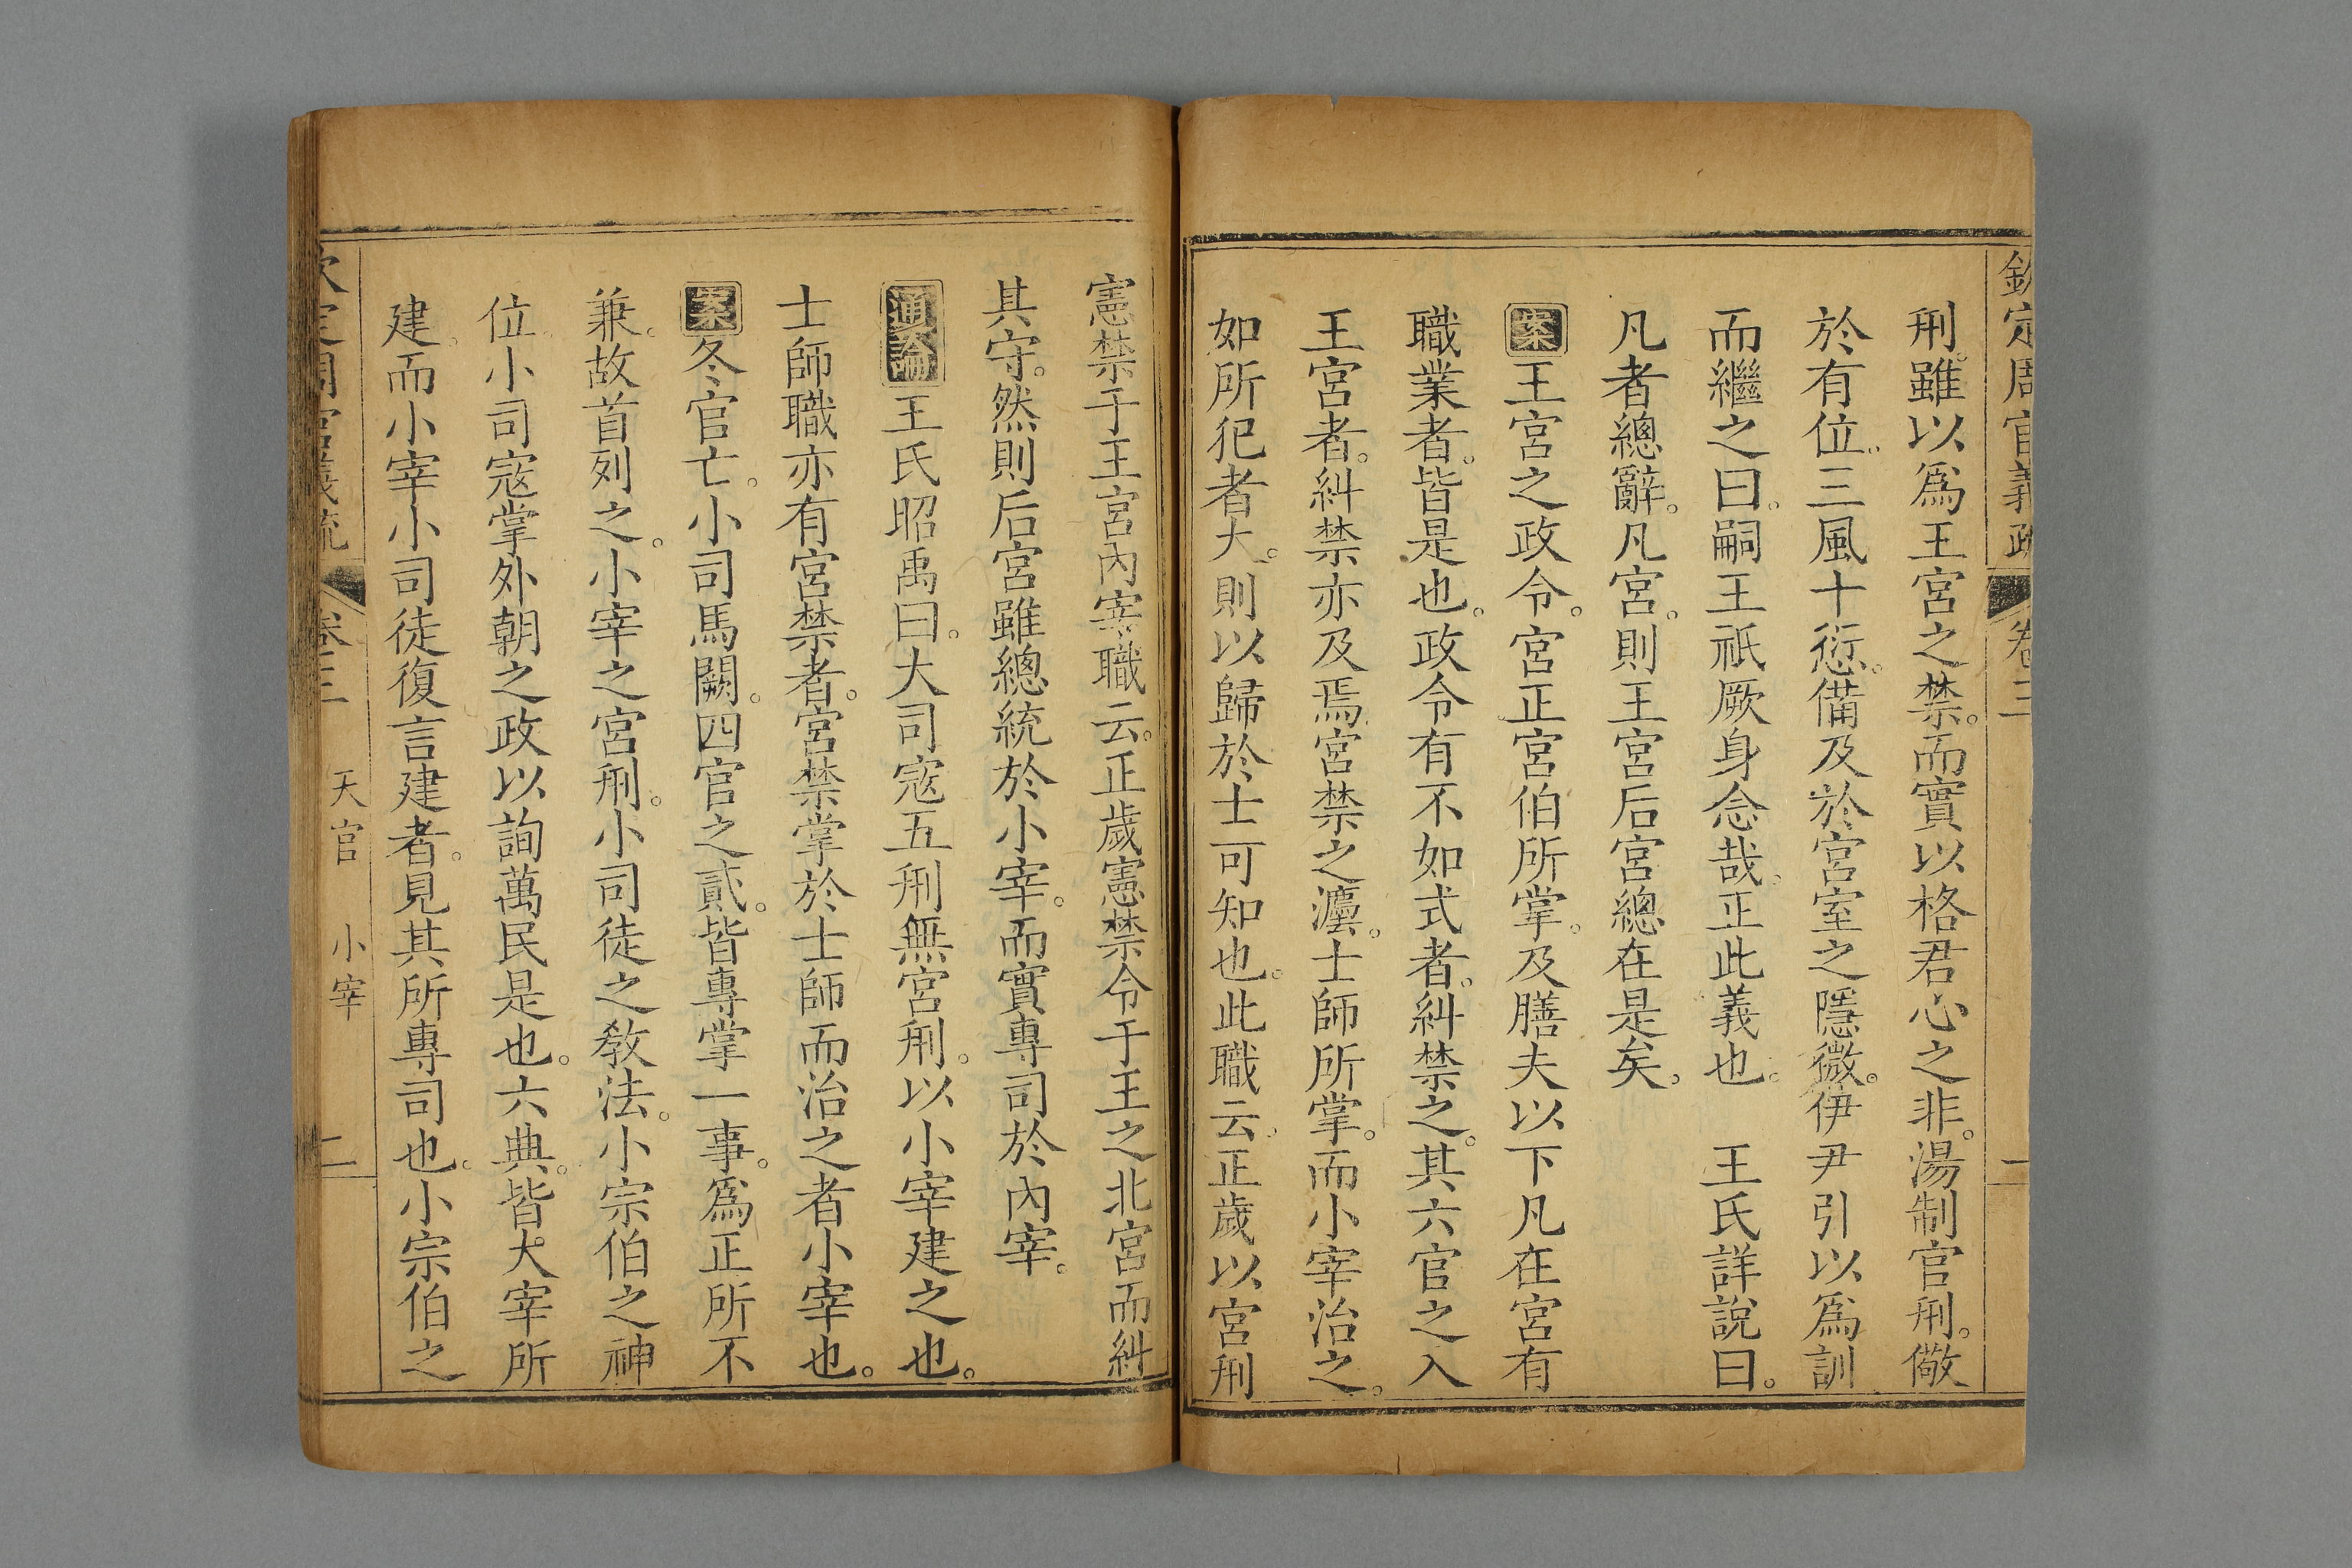 欽定周官義疏 卷三 一
刑。雖以爲王宮之禁。而實以格君心之非。湯制官刑。儆
於有位。三風十愆。備及於宮室之隱微。伊尹引以爲訓
而繼之曰。嗣王祇厥身念哉。正此義也。 王氏詳說曰。
凡者總辭。凡宮。則王宮后宮總在是矣。
案王宮之政令。宮正宮伯所掌。及膳夫以下凡在宮有
職業者。皆是也。政令有不如式者。糾禁之。其六官之入
王宮者。糾禁亦及焉。宮禁之灋。士師所掌。而小宰治之。
如所犯者大。則以歸於士可知也。此職云。正歲以宮刑
憲禁于王宮內宰職云。正歲憲禁令于王之北宮而糾
其守。然則后宮雖總統於小宰。而實專司於內宰。
通論王氏昭禹曰。大司寇五刑無宮刑。以小宰建之也。
士師職亦有宮禁者。宮禁掌於士師而治之者小宰也。
案冬官亡。小司馬闕。四官之貳。皆專掌一事。爲正所不
兼。故首列之。小宰之宮刑。小司徒之教法。小宗伯之神
位。小司寇掌外朝之政以詢萬民是也。六典。皆大宰所
建。而小宰小司徒復言建者。見其所專司也。小宗伯之
欽定周官義疏 卷三 天官 小宰 二